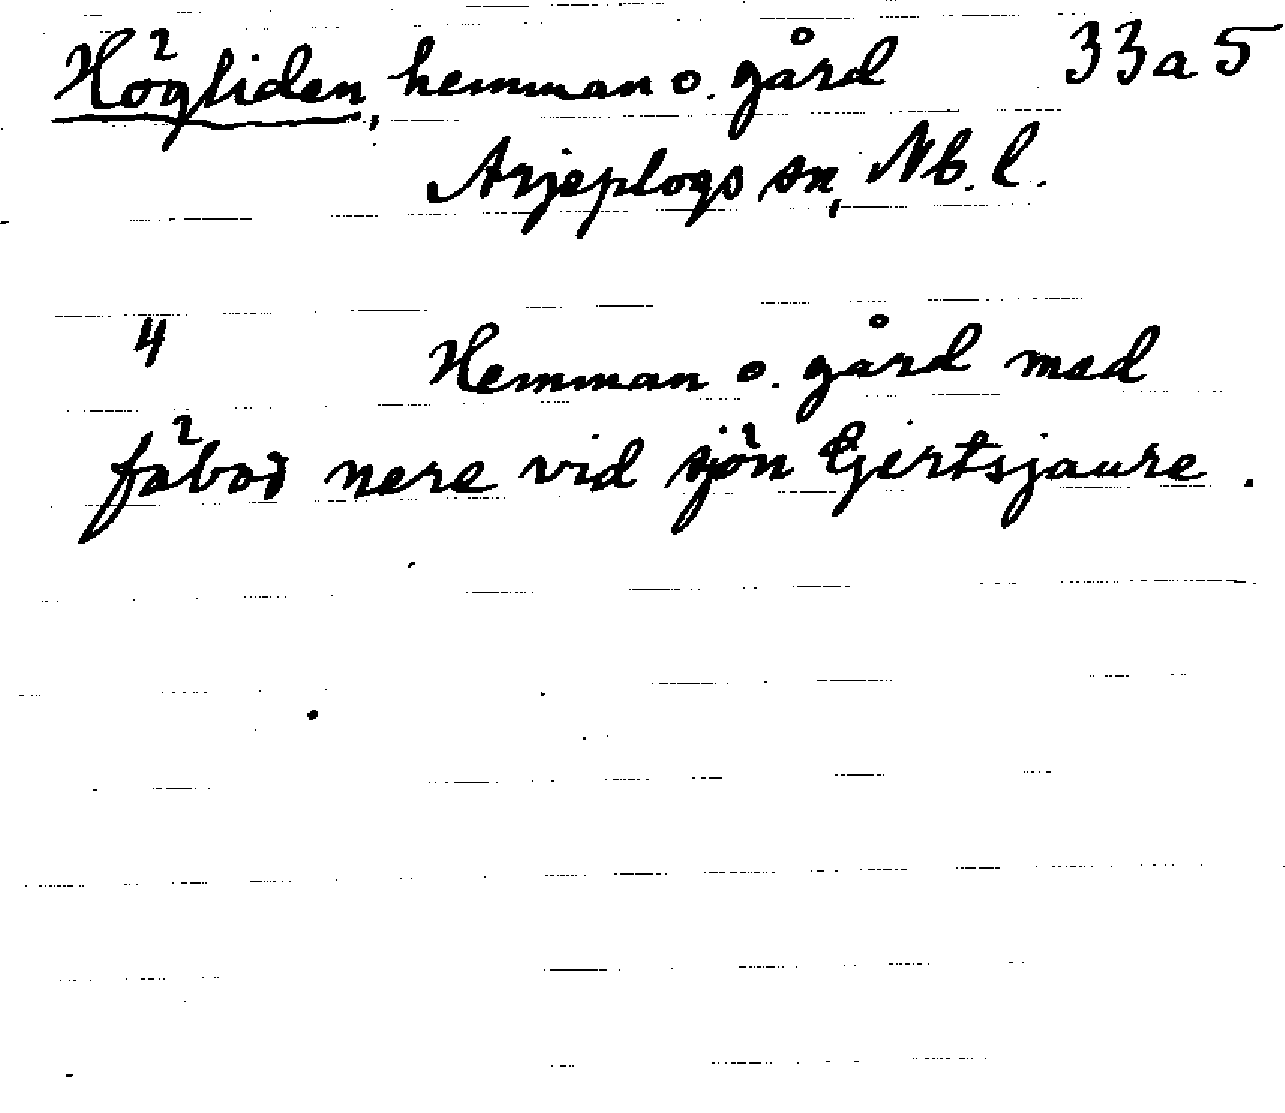 Högliden, hemman o. gård 33a5
Arjeplogs sn, Nb. l.
4 Hemman o. gård med
fäbod nere vid sjön Gjertsjaure.